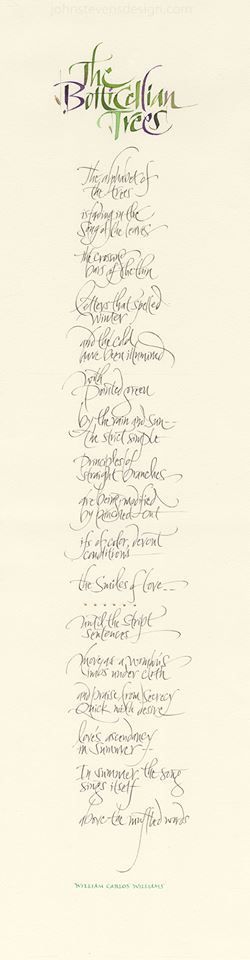 johnstevensdesign.com
The
Botticellian
Trees
The alphabet of
the trees
is fading in the
song of the leaves
the crossing
bars of the thin
letters that spelled
winter
and the cold
have been illumined
with
pointed green
by the rain and sun--
The strict simple
principles of
straight branches
are being modified
by pinched-out
ifs of color, devout
conditions
the smiles of love--
. . . . . . .
until the stript
sentences
move as a woman's
limbs under cloth
and praise from secrecy
quick with desire
love's ascendancy
in summer--
In summer the song
sings itself
above the muffled words
WILLIAM CARLOS WILLIAMS